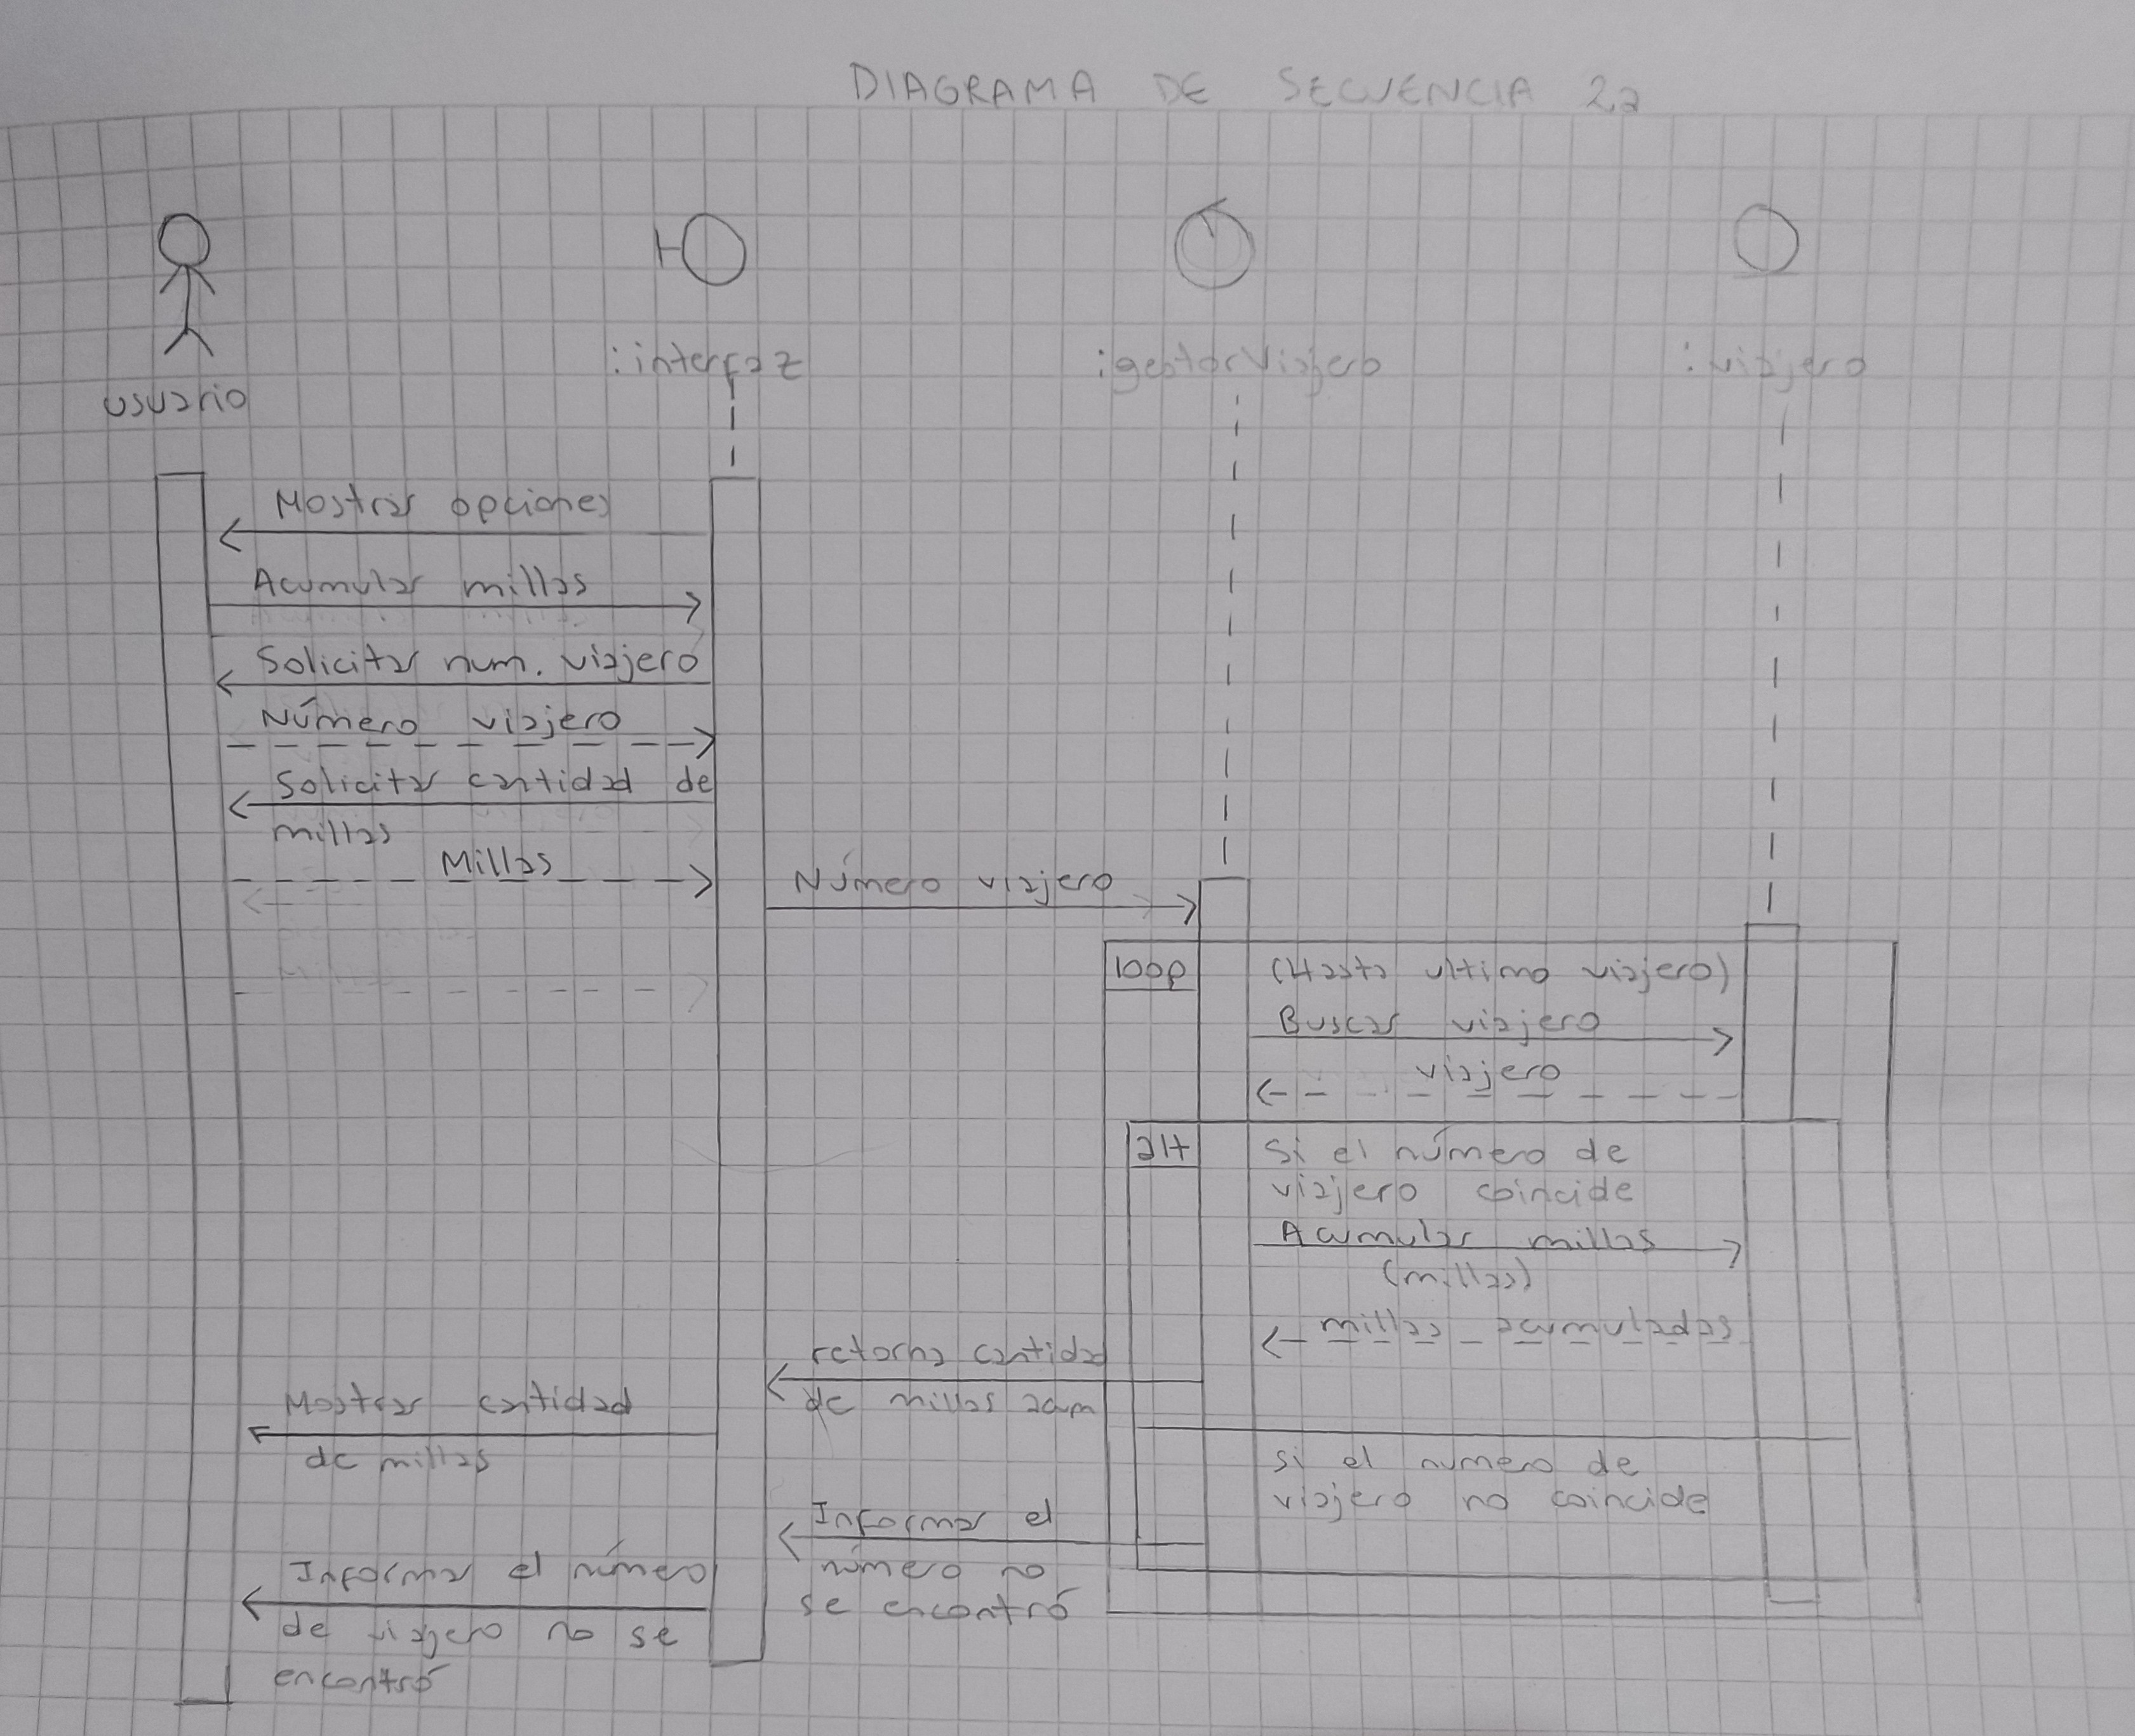 DIAGRAMA DE SECUENCIA 2a
usuario
:interfaz
:gestorViajero
:viajero
Mostrar opciones
Acumular millas
Solicitar num. viajero
Número viajero
Solicitar cantidad de
millas
Millas
Número viajero
loop
(Hasta ultimo viajero)
Buscar viajero
viajero
alt
Si el número de
viajero coincide
Acumular millas
(millas)
millas acumuladas
retorna cantidad
de millas acum
Mostrar cantidad
de millas
si el numero de
viajero no coincide
Informar el
número no
se encontró
Informar el número
de viajero no se
encontró